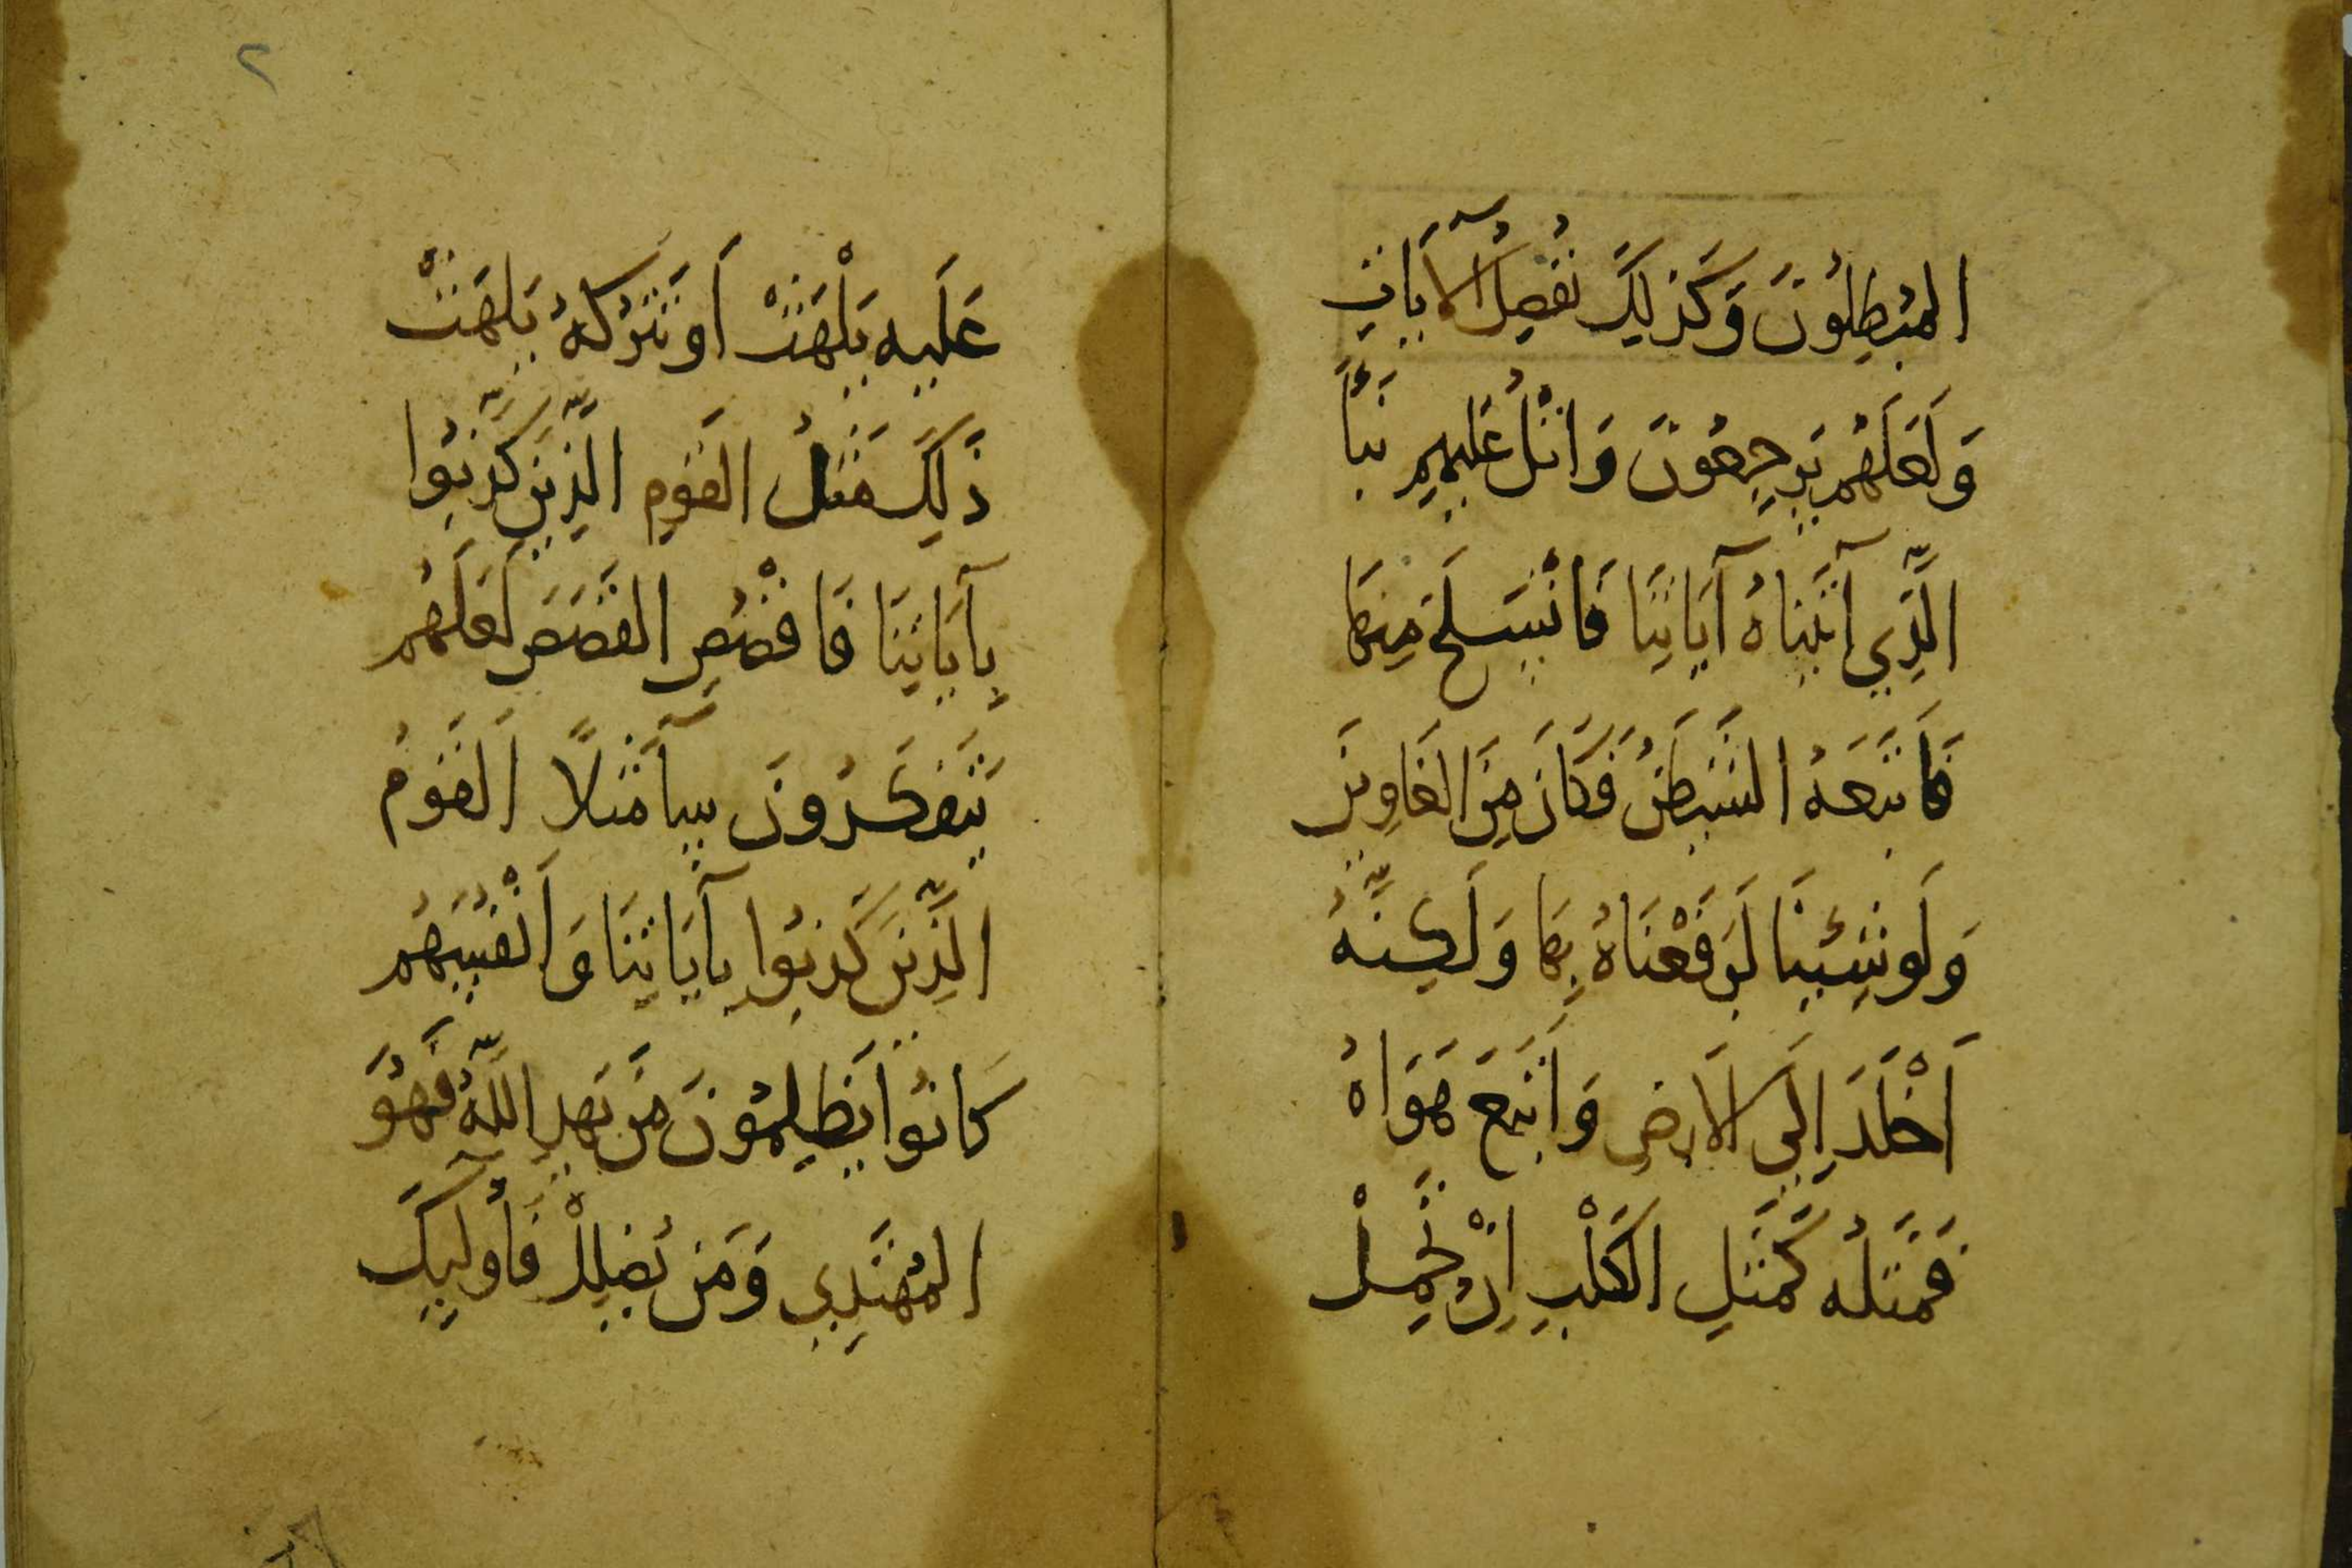 المُبْطِلُونَ وَكَذَلِكَ نُفَصِلُ الآيَاتِ
وَلَعَلَهُم يَرجِعُونَ وَاتْلُ عَلَيهِم نَبَأَ
الَّذِي آتَينَاهُ آيَاتِنَا فَانْسَلَخَ مِنهَا
فَاَتبَعَهُ الشَيطَنُ فَكَانَ مِنَ الغَاوِينَ
وَلَو شِئنَا لَرَفَعْنَاهُ بِهَا وَلَكِنَّهُ
اَخْلَدَ اِلَى الاَرضِ وَاتَبَعَ هَوَاهُ
فَمَثَلُه كَمَثَلِ الكَلْبِ اِنْ تَحمِلْ
٢
عَلَيه يَلْهَثْ اَو تَترُكهُ يَلهَثْ
ذَلِكَ مَثَلُ القَومِ الَّذِينَ كَذَّبُوا
بِآيَاتِنَا فَاقْصُصِ القَصَصَ لَعَلَهُم
يَتَفَكَرُونَ سَآءَ مَثَلًا اَلقَومُ
الَّذِينَ كَذَبُوا بِآيَاتِنَا وَاَنْفُسَهُم
كَانُوا يَظلِمُونَ مَن يَهدِ اللَّهُ فَهُوَ
المُهتَدِي وَمَن يُضلِلْ فَأُولَٓئِكَ